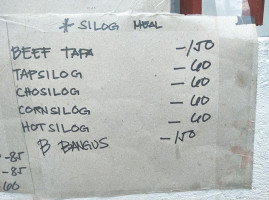 * SILOG MEAL
BEEF TAPA -150
TAPSILOG - 60
CHOSILOG - 60
CORNSILOG - 60
HOTSILOG - 60
B BANGUS -150
-85
-85
60